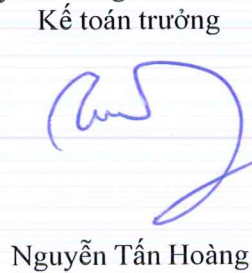 Kế toán trưởng
Nguyễn Tấn Hoàng